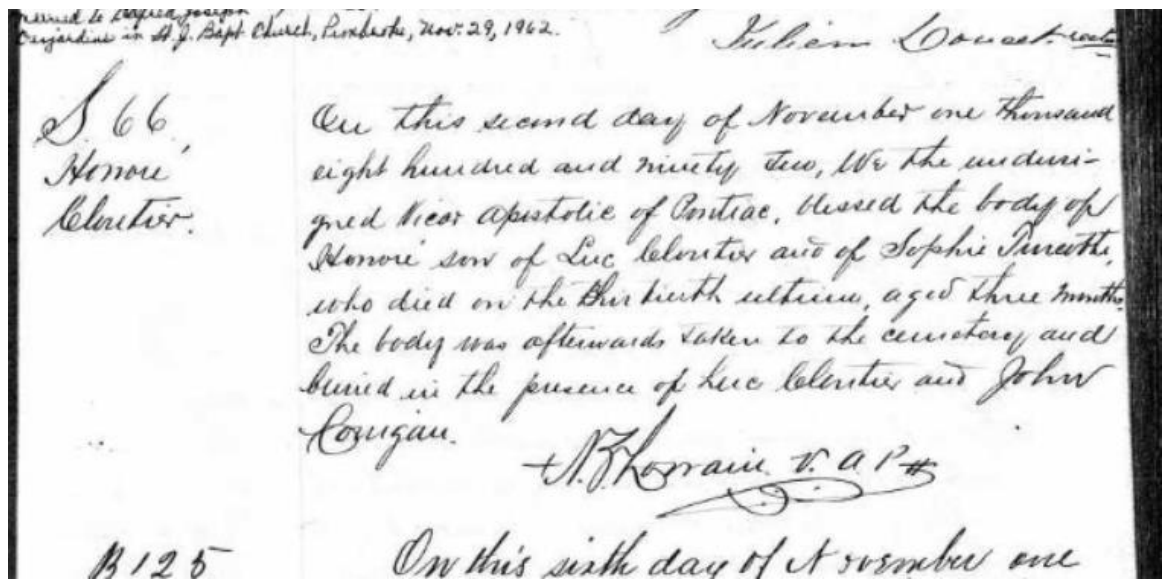 married to Joseph
Desjardins in St. J. Bapt. Church, Pembroke, Nov. 29, 1962.
S. 66
Honoré
Cloutier.
On this second day of November one thousand
eight hundred and ninety two, We the undersi-
gned Vicar apostolic of Pontiac, blessed the body of
Honoré son of Luc Cloutier and of Sophie Turcotte,
who died on the thirtieth ultimo, aged three months.
The body was afterwards taken to the cemetery and
buried in the presence of Luc Cloutier and John
Corrigan.
+ N. Z. Lorrain V. A. P.
B 125
On this sixth day of November one